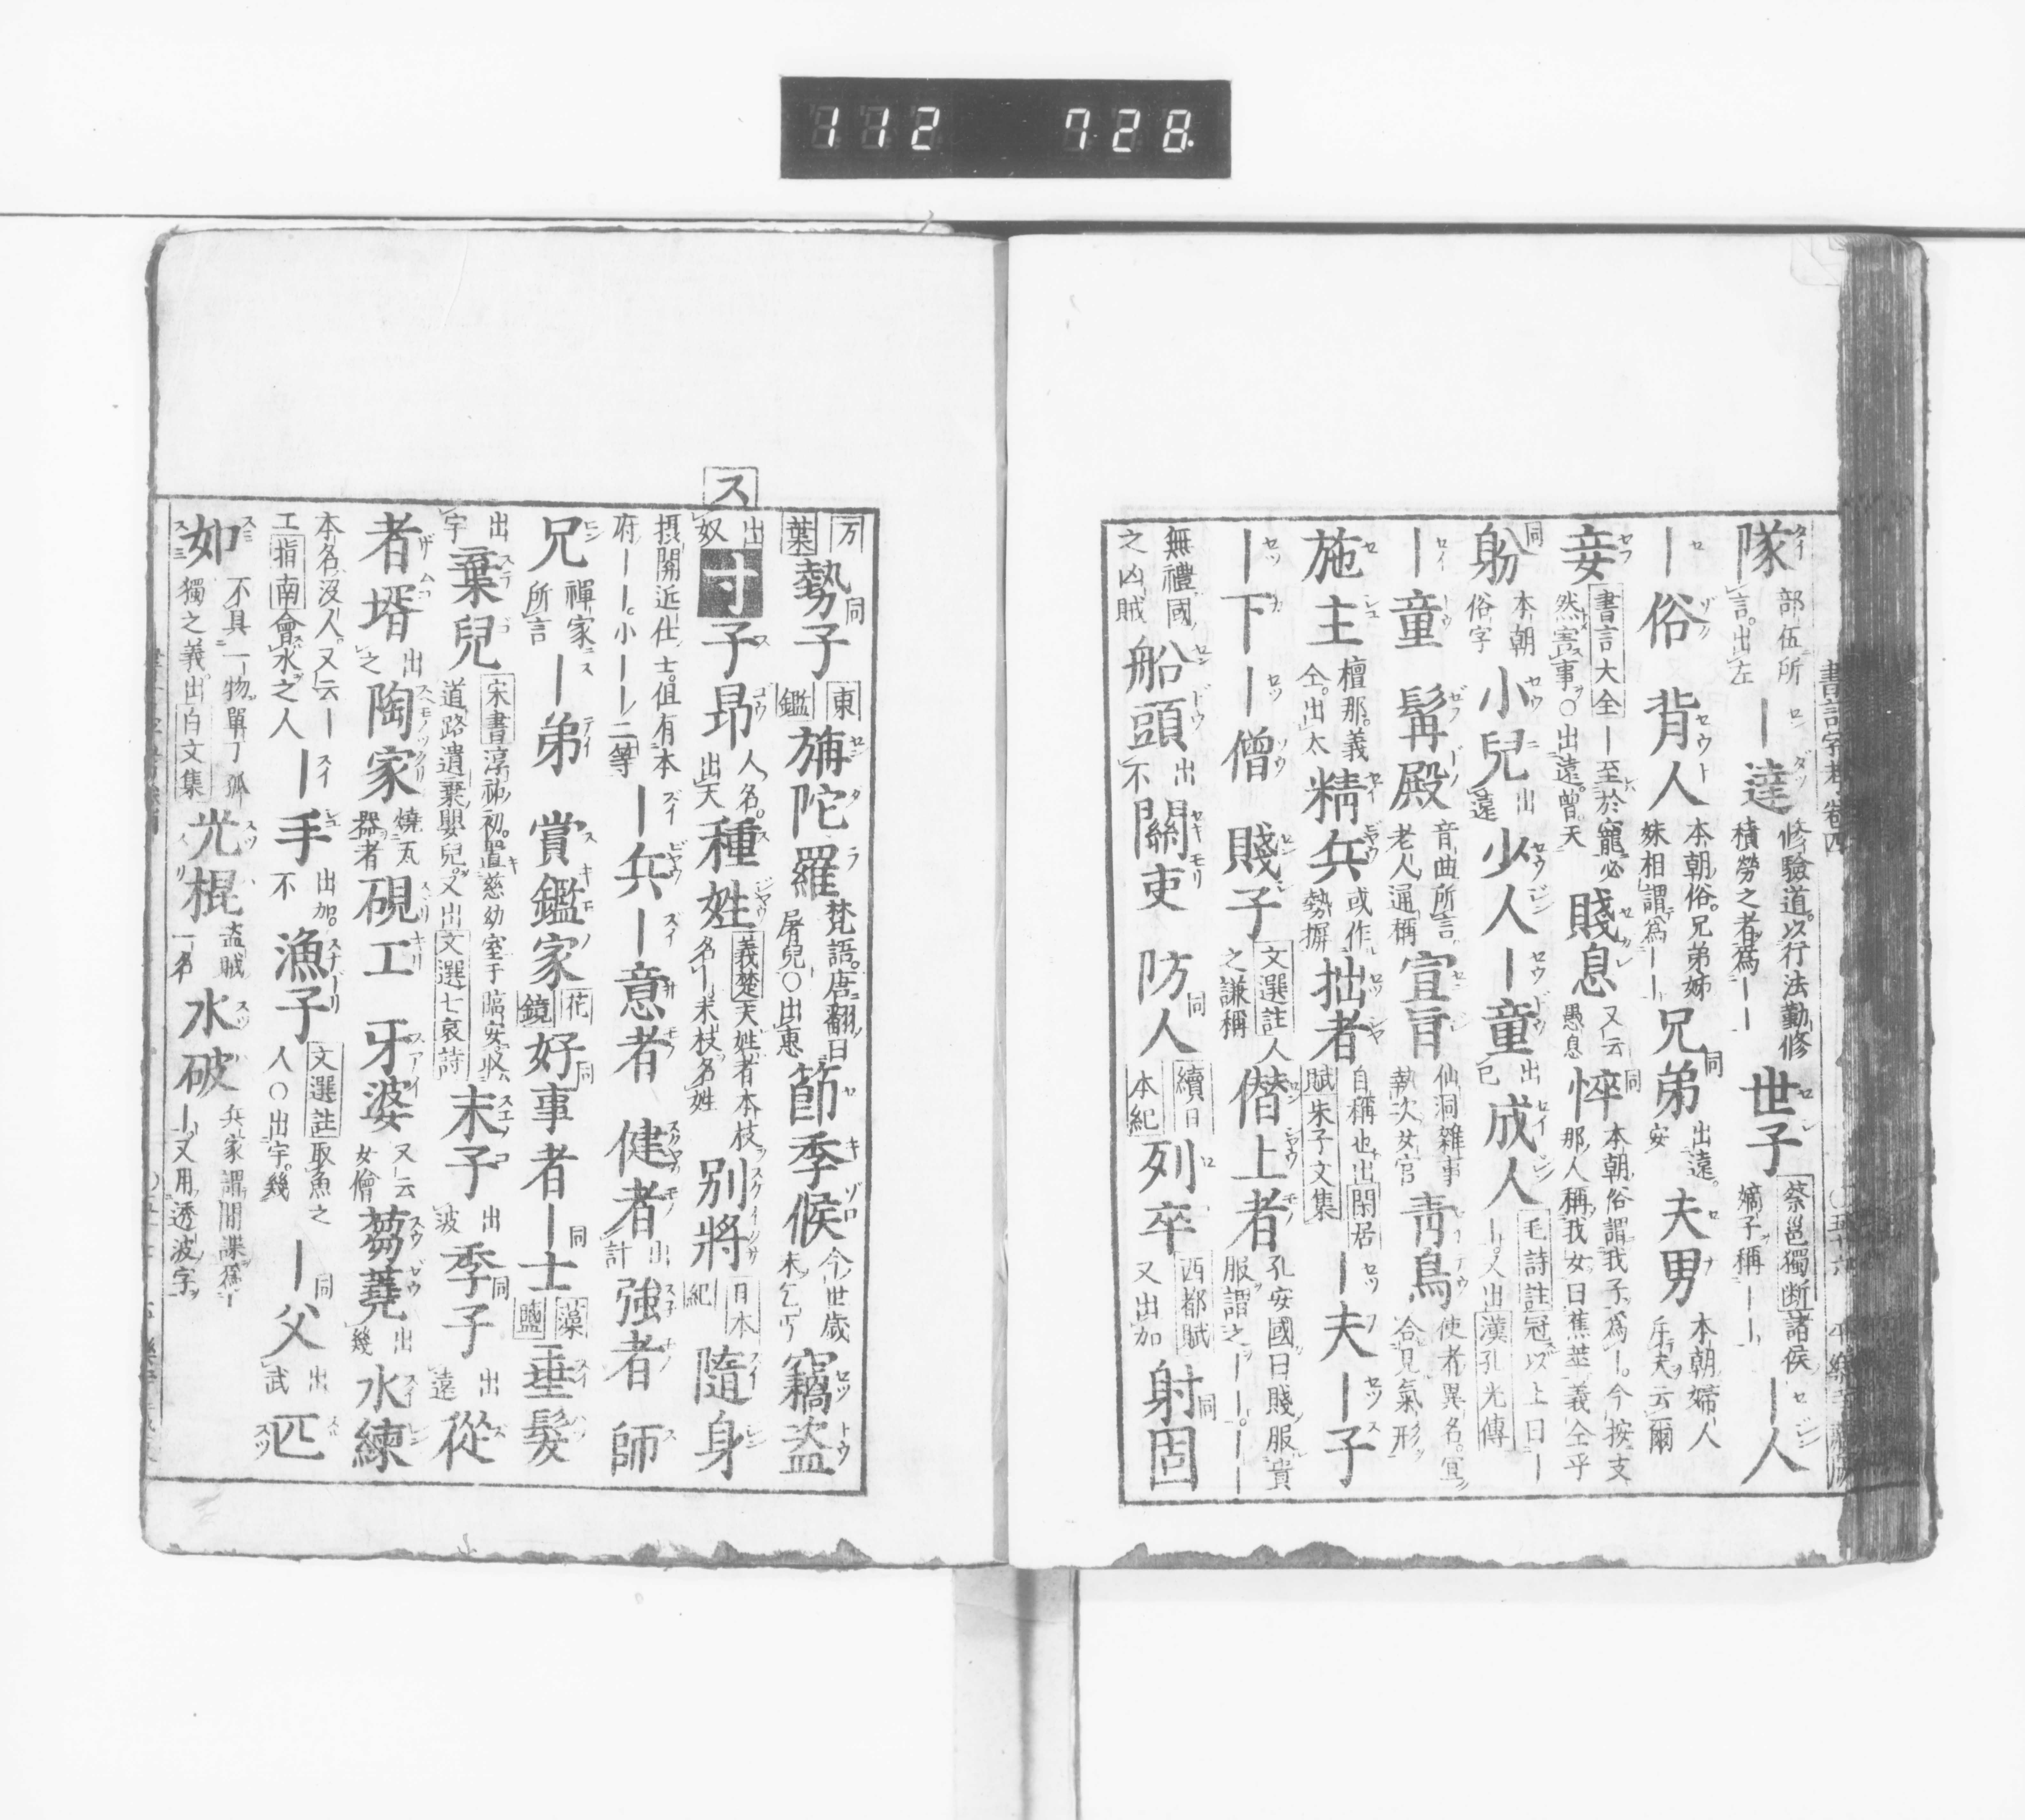 112 728
書言字考卷四
隊 部伍所言。出左 ―達 修驗道。以行法勤修積勞之者爲―― 世子 蔡邕獨断諸侯嫡子稱―― ―人
―俗 背人 本朝俗。兄弟姊妹相謂爲―― 兄弟 出遠。安 夫男 本朝婦人斥夫云爾
妾 書言大全―至於寵必然害事〇出遠。曾。天 賤息 又云愚息 悴 本朝俗謂我子爲―。今按支那人稱我女曰蕉萃義仝乎
躮 本朝俗字 小兒 出遠 少人 ―童 出己 成人 毛詩註冠以上曰――。又出漢孔光傳
―童 髯殿 音曲所言老人通稱 宣旨 仙洞雜事執次女官 青鳥 使者異名。宜合見氣形
施主 檀那。義仝。出太 精兵 或作勢摒 拙者 自稱也出閑居賦朱子文集 ―夫 ―子
―下 ―僧 賤子 文選註人之謙稱 僭上者 孔安國曰賤服貴服謂之――。――
無禮國之凶賊 船頭 出不 關吏 防人 續日本紀 列卒 西都賦又出加 射固
万葉 勢子 東鑑 旃陀羅 梵語。唐翻曰屠兒〇出惠 節季候 今世歳末乞丐 竊盗
ス
出奴 寸 子 昴 人名。出天 種姓 義楚天姓者本枝名―末枝名姓 別將 日本紀 隨身
摂關近仕士。但有本府――。小――二等 ―兵 ―意者 健者 出計 強者 師
兄 禪家所言 ―弟 賞鑑家 花鏡 好事者 ―士 藻鹽 垂髮
出宇 棄兒 宋書淳祐初。置慈幼室于臨安收道路遺棄嬰兒。又出文選七哀詩 末子 出波 季子 出遠 從
者 壻 出之 陶家 燒瓦器者 硯工 牙婆 又云女儈 芻蕘 出幾 水練
本名没人。又云―工指南會水之人 ―手 出加。不 漁子 文選註取魚之人〇出宇。幾 ―父 出武 匹
如 不具一物。單丁孤獨之義。出白文集 光棍 盗賊一名 水破 兵家謂間諜爲―。又用透波字